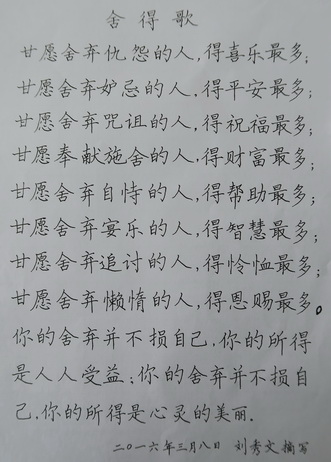 舍得歌
甘愿舍弃仇怨的人,得喜乐最多;
甘愿舍弃妒忌的人.得平安最多;
甘愿舍弃咒诅的人,得祝福最多;
甘愿奉献施舍的人,得财富最多;
甘愿舍弃自恃的人,得帮助最多;
甘愿舍弃宴乐的人,得智慧最多;
甘愿舍弃追讨的人,得怜恤最多;
甘愿舍弃懒惰的人,得恩赐最多。
你的舍弃并不损自己.你的所得
是人人受益;你的舍弃并不损自
己.你的所得是心灵的美丽.
二〇一六年三月八日 刘秀文摘写